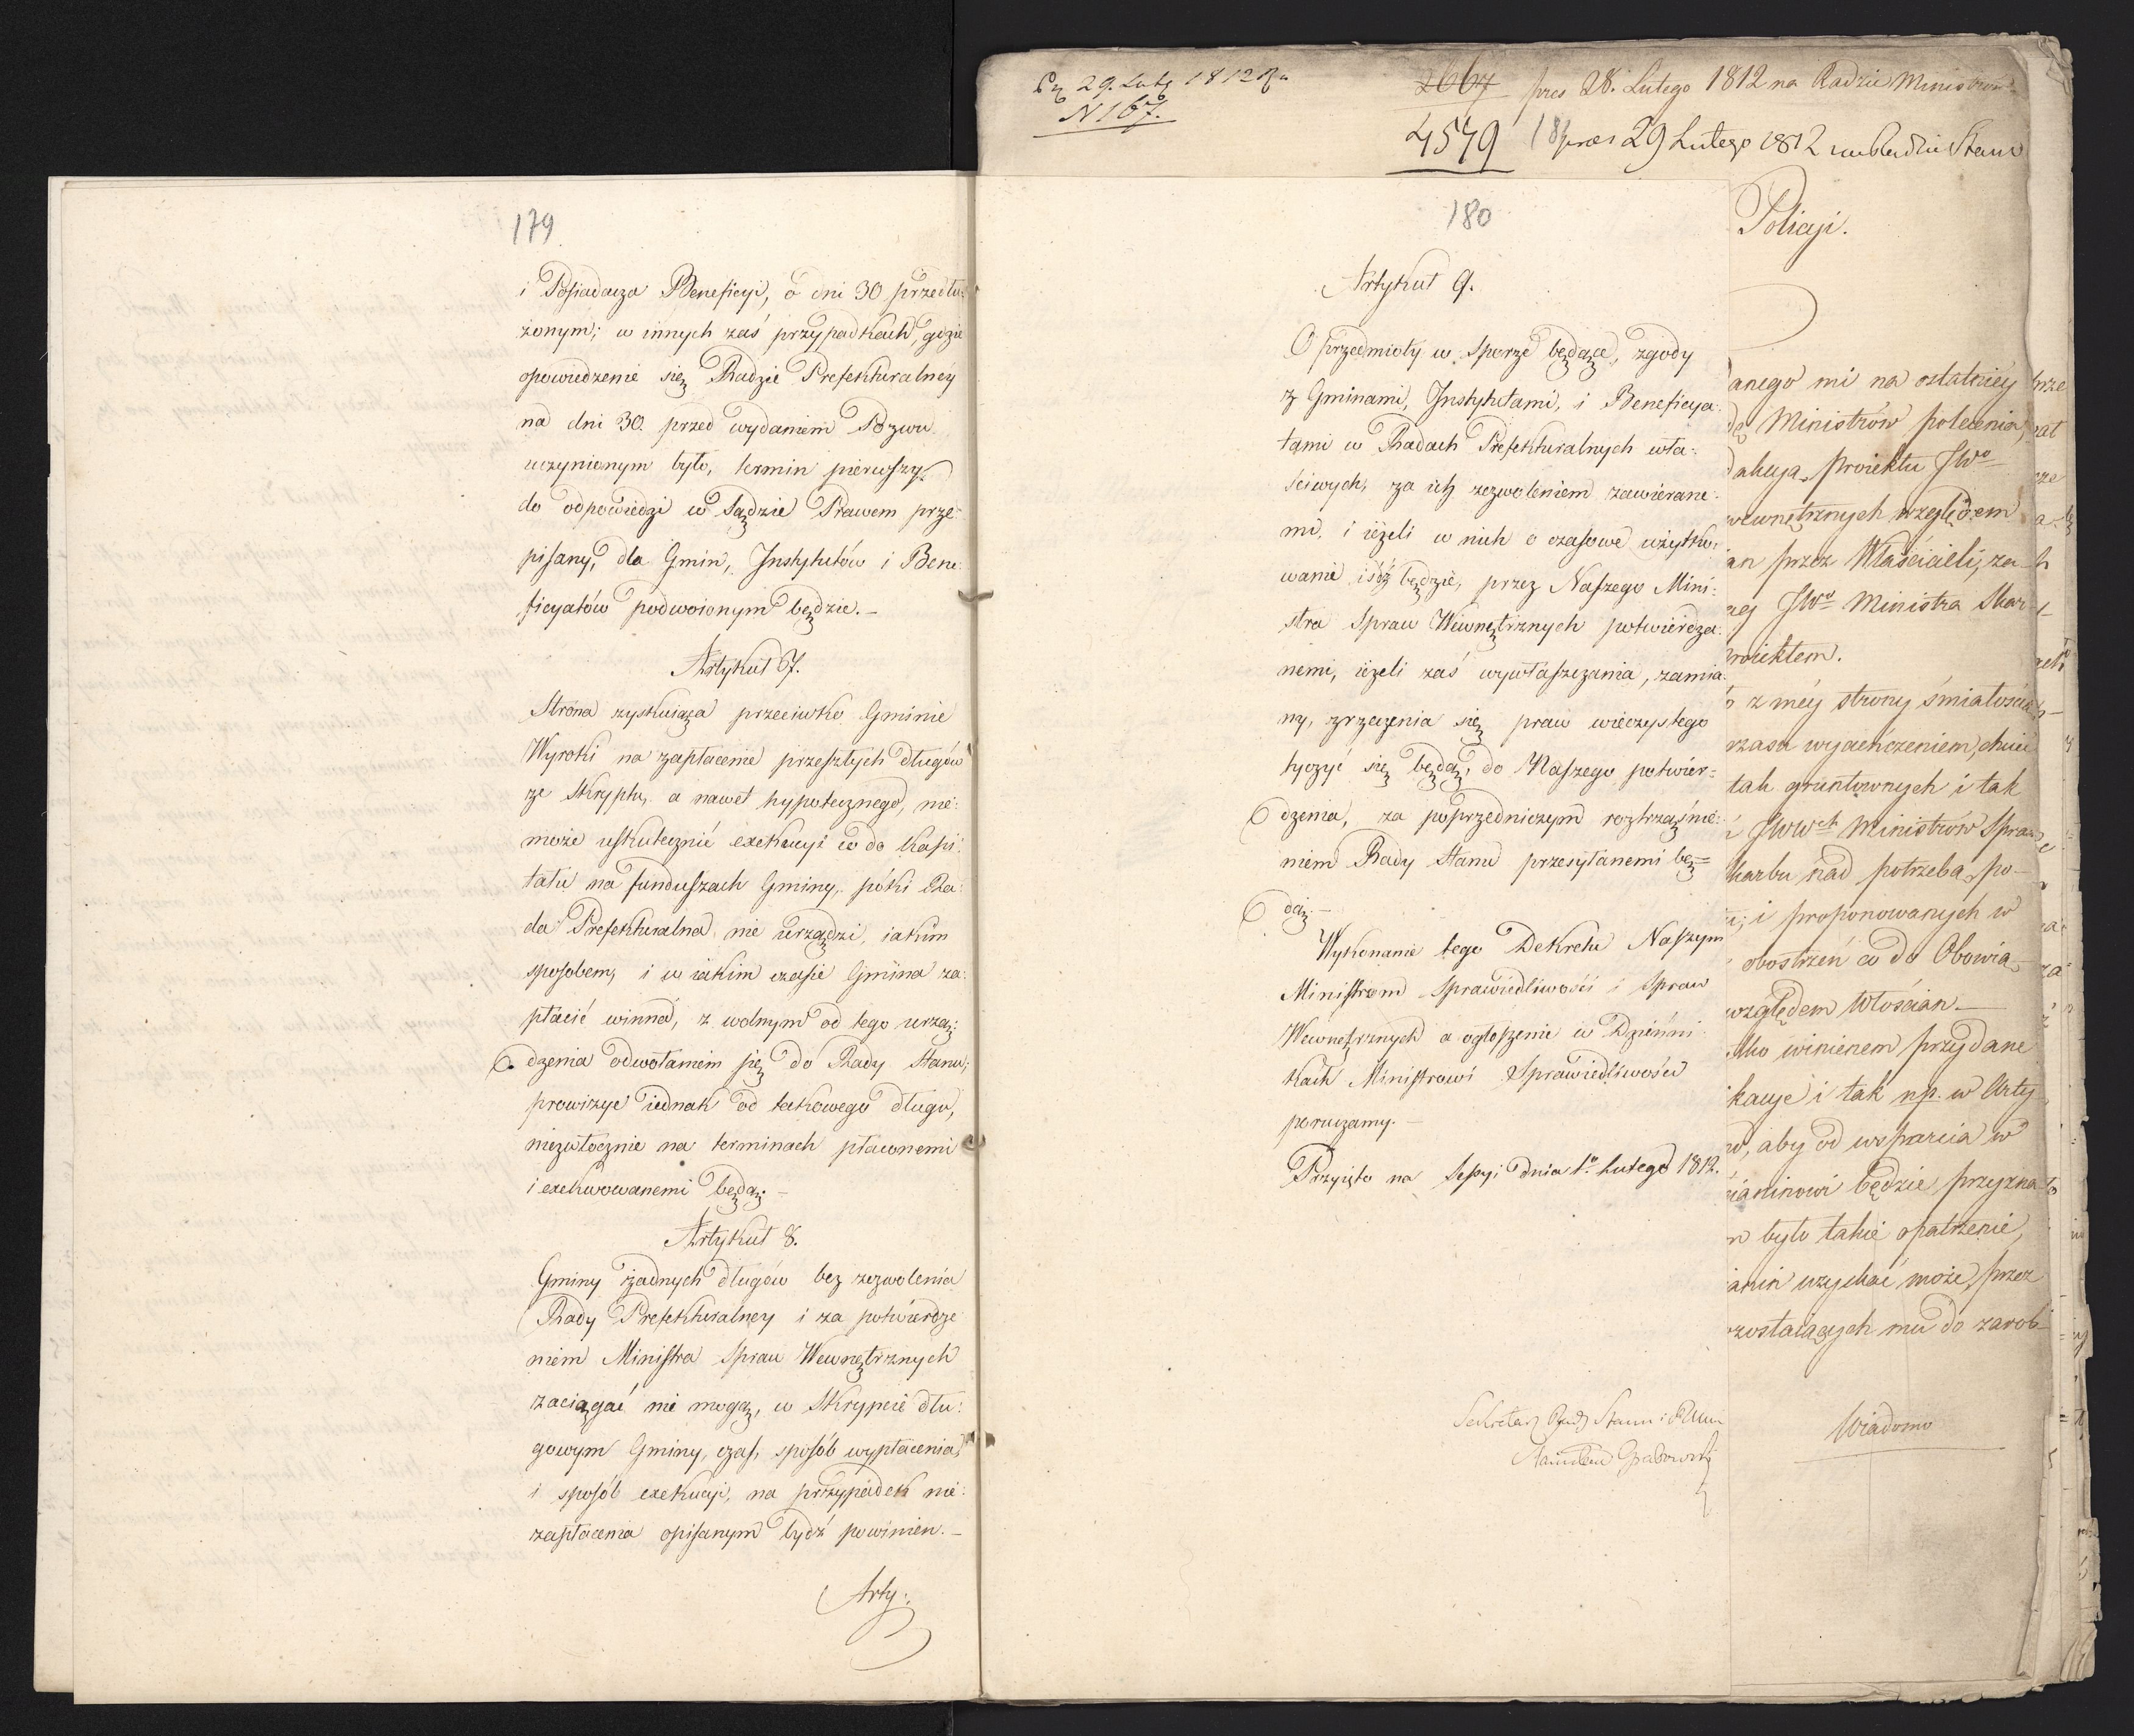 179
i Posiadacza Beneficyi, o dni 30 przedłu:
żonym; w innych zaś przypadkach, gdzie
opowiedzenie się Radzie Prefekturalney
na dni 30. przed wydaniem Pozwu
uczynionym było, termin pierwszy
do odpowiedzi w Sądzie Prawem prze:
pisany, dla Gmin, Instytutów i Bene:
ficyatów podwoionym będzie.—
Artykuł 7.
Strona zyskuiąca przeciwko Gminie
Wyroki na zapłacenie przeszłych długów
ze Skryptu, a nawet hypotecznego, nie:
może uskutecznić exekucyi co do Kapi:
tału na funduszach Gminy, póki Ra:
da Prefekturalna nie urządzi, iakim
sposobem, i w iakim czasie Gmina za:
płacić winna, z wolnym od tego urzą:
dzenia odwołaniem się do Rady Stanu;
prowizye iednak od takowego długu,
niezwłocznie na terminach płaconemi
i exekwowanemi będą.—
Artykuł 8.
Gminy żadnych długów bez zezwolenia
Rady Prefekturalney i za potwierdze
niem Ministra Spraw Wewnętrznych
zaciągać nie mogą, w Skrypcie dłu:
gowym Gminy, czas, sposób wypłacenia,
i sposób exekucyi, na przypadek nie:
zapłacenia opisanym bydź powinien.—
Arty:
29. Luty 1812 R.
N 167.
2667 pres 28. Lutego 1812 na Radzie Ministrów
4549 pres 29 Lutego 1812 na Radzie Stanu
180
Artykuł 9.
O przedmioty w sporze będące, zgody
z Gminami, Instytutami, i Beneficya:
tami w Radach Prefekturalnych wła:
ściwych, za ich zezwoleniem zawierane:
mi, i ieżeli w nich o czasowe użytko:
wanie iść będzie, przez Naszego Mini:
stra Spraw Wewnętrznych potwierdza:
nemi, ieżeli zaś wywłaszczania, zamia:
ny, zrzeczenia się praw wieczystego
tyczyć się będą, do Naszego potwier:
dzenia, za poprzedniczym roztrząśnie:
niem Rady Stanu przesyłanemi bę=
dą.—
Wykonanie tego Dekretu Naszym
Ministrom Sprawiedliwości i Spraw
Wewnętrznych a ogłoszenie w Dzienni
kach Ministrowi Sprawiedliwości
poruczamy.—
Przyięto na Sessyi dnia 1o Lutego 1812.
Sekretarz Rady Stanu i R. Min
Stanisław Grabowski
Policyi.
anego mi na ostatniéy
dę Ministrów polecenia,
dakcyą proiektu JWo
wewnętrznych względem
an przez Właścicieli, za
JWo Ministra Skar
roiektem.
z méy strony śmiałości
czasu wycieńczeniem, chcieć
tak gruntownych i tak
JWWch Ministrów Spraw
karbu nad potrzebą po—
i proponowanych w
obostrzeń co do Obowią
względem Włościan.—
winienem przydane
kacye i tak np. w Arty
aby od wsparcia w
ianinowi będzie przyzna
było takie opatrzenie,
anin uzyskać może, przez
zostaiących mu do zarob
Wiadomo